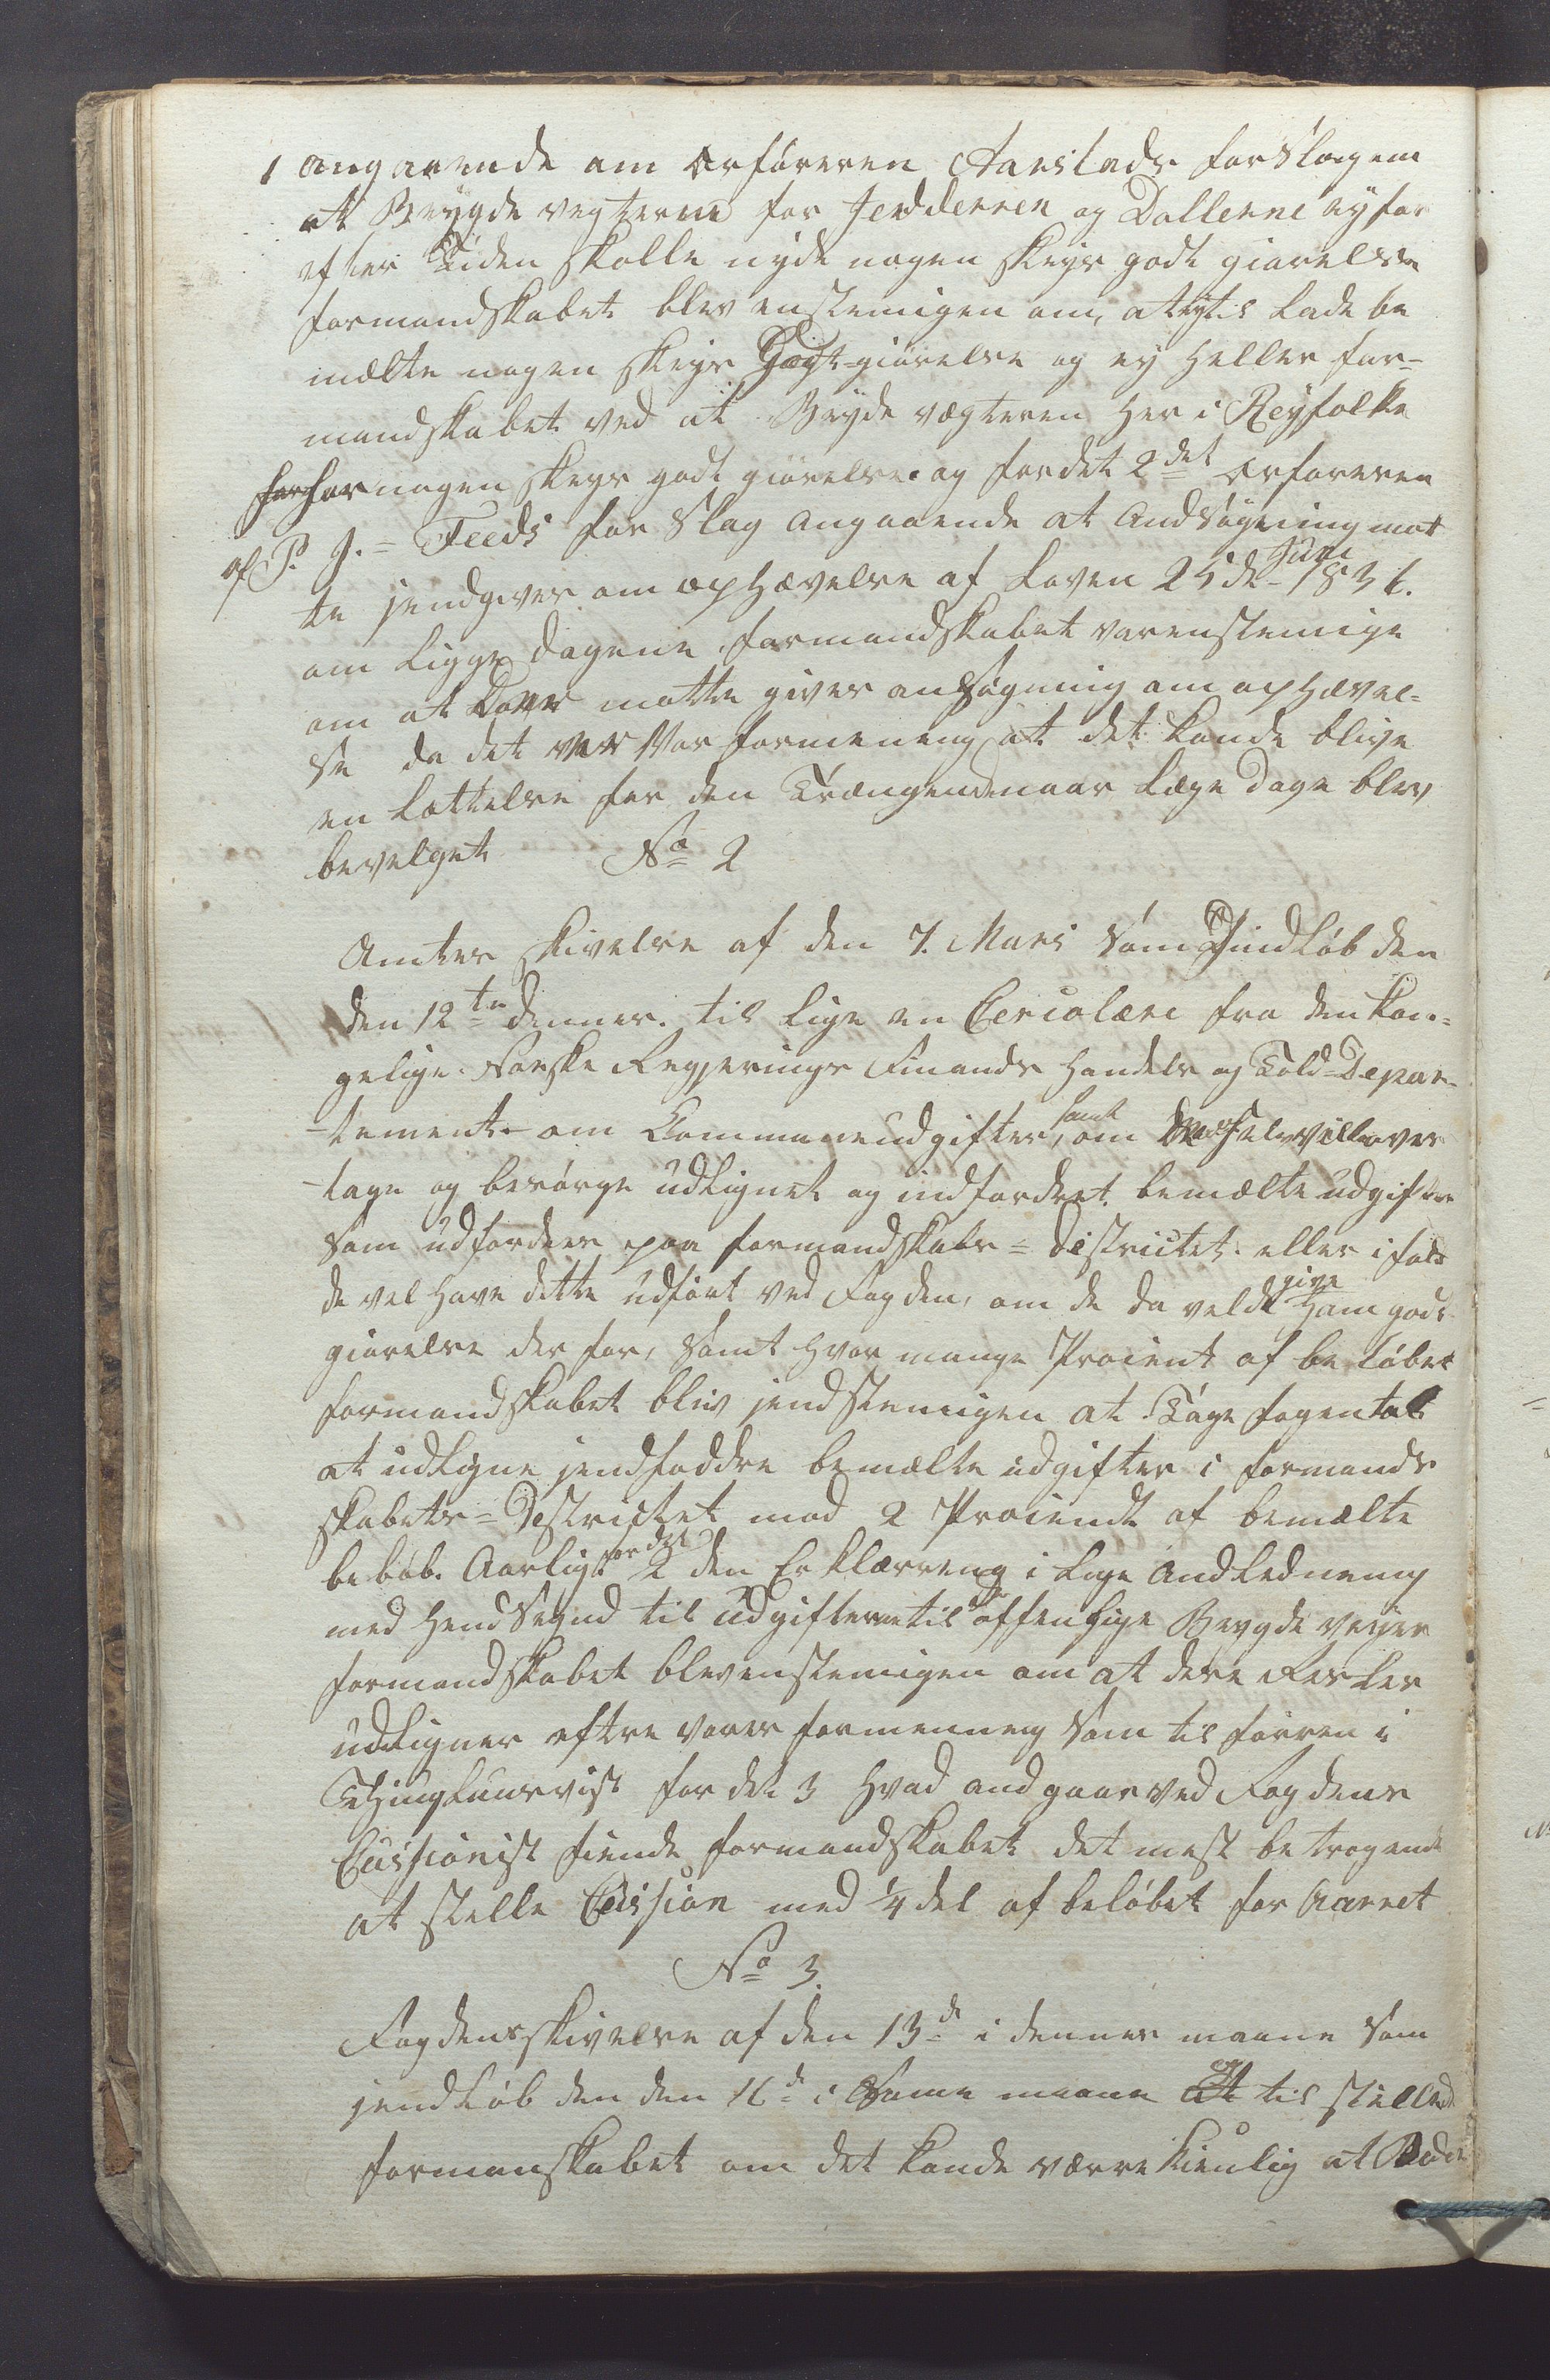 1 angaaende om Orføreren Aarstads forslagem
at Beygde vegterne for Jedderen og Dallerne ey for
efter Tiden skulle nyde nogen skys godt giørelse
formandskabet blev enstemigen om, at ej til Lade be
mælte nogen skys Godt-giørelse og ey heller for-
mandskabet ved at Bøyde vægteren her i Reyfolke
forhar nogen skys godt giørelse. og fordet 2det Orføreren
af P. J. = Feeds for slag angaaende at Andsøgning mot
te jendgives om ophævelse af Loven 25de Juni 1836.
om Ligge dagene formandskabet var enstemige
om at Der motte gives ansøgning om ophævel-
se da det var Vor formening at det kunde blive
en Lettelse for den Trængende naar Læge dage blev
bevelget No 2
Amtes skrivelse af den 7. Mars som Jindløb den
den 12te dennes. til Lige en Circolære fra den kon-
gelige Norske Regjerings Finands Handels og Told-Depar-
-tement om Communeudgifter, samt om De selv vill over
-tage og besørge udLignet og indfordret bemælte udgifter
som udfordres paa formandskabs = Districtet eller i fald
de vel have dette udført ved Fogden, om de da velde give Ham godt
giørelse der for, samt hvor mange Procent af be løbet
formandskabet blev jendstemigen at Tage fogen tel
at udLigne jendfoddre bemælte udgifter i formands
skabets = Destrictet mod 2 Prociendt af bemælte
beløb. Aarligt for det 2 den Erklærreng i Lige AndLedneng
med HendSeynd til Udgifterne til offenlige Beygde veyer
formandskabet blev enstemigen om at dere Rester
udLignes eftre vores formenneng som til førren i
Thinglausvist for det 3 Hvad andgaar ved Fogdens
Caussionist fiende formandskabet det mest be tregende
at stelle Caission med 1/4 del af beløbet for Aarret
No 3.
Fogdens skrivelse af den 13de i dennes maane som
jendLøb den den 16d i Samme maane at til stelled
formanskabet om det kunde værre kienlig at Bede